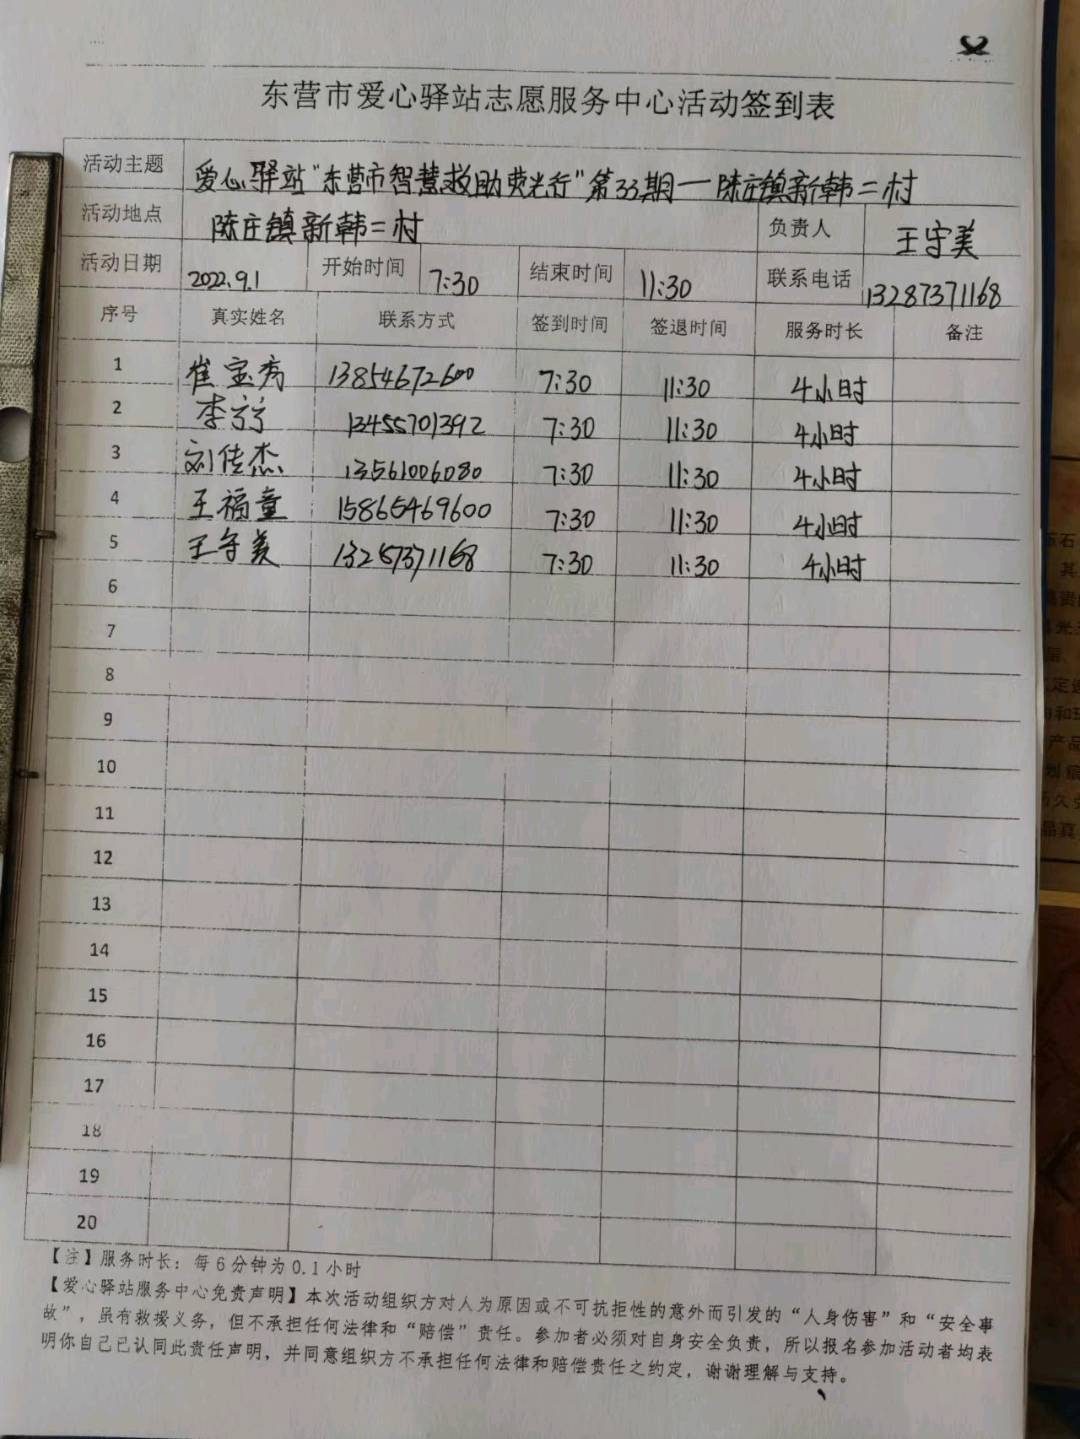 东营市爱心驿站志愿服务中心活动签到表
活动主题 爱心驿站“东营市智慧救助荧光行”第33期一陈庄镇新韩二村
活动地点 陈庄镇新韩二村 负责人 王守美
活动日期 2022.9.1 开始时间 7:30 结束时间 11:30 联系电话 13287371168
序号 真实姓名 联系方式 签到时间 签退时间 服务时长 备注
1 崔宝秀 13854672600 7:30 11:30 4小时
2 李宁宁 13455701392 7:30 11:30 4小时
3 刘传杰 13561006080 7:30 11:30 4小时
4 王福童 15865469600 7:30 11:30 4小时
5 王守美 13287371168 7:30 11:30 4小时
6
7
8
9
10
11
12
13
14
15
16
17
18
19
20
【注】服务时长：每6分钟为0.1小时
【爱心驿站服务中心免责声明】本次活动组织方对人为原因或不可抗拒性的意外而引发的“人身伤害”和“安全事
故”，虽有救援义务，但不承担任何法律和“赔偿”责任。参加者必须对自身安全负责，所以报名参加活动者均表
明你自己已认同此责任声明，并同意组织方不承担任何法律和赔偿责任之约定，谢谢理解与支持。